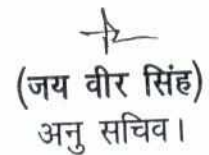 (जय वीर सिंह)
अनु सचिव।